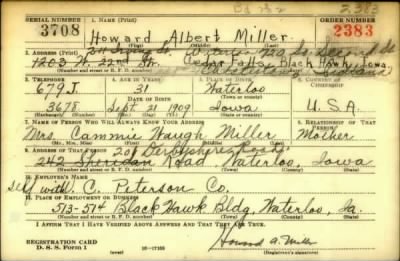 2383
SERIAL NUMBER
1. NAME (Print)
ORDER NUMBER
3708
Howard Albert Miller
2383
(First) (Middle) (Last)
2. ADDRESS (Print)
1203 W. 22nd St. Cedar Falls, Black Hawk, Iowa
(Number and street or R. F. D. number) (Town) (County) (State)
3. TELEPHONE
4. AGE IN YEARS
5. PLACE OF BIRTH
6. COUNTRY OF CITIZENSHIP
679J
31
Waterloo
DATE OF BIRTH
3678
Sept. 21 1909
Iowa
U.S.A.
(Exchange) (Number)
(Mo.) (Day) (Yr.)
(State or country)
7. NAME OF PERSON WHO WILL ALWAYS KNOW YOUR ADDRESS
8. RELATIONSHIP OF THAT PERSON
Mrs. Cammie Waugh Miller
Mother
(Mr., Mrs., Miss) (First) (Middle) (Last)
9. ADDRESS OF THAT PERSON
242 Sheridan Road Waterloo, Iowa
(Number and street or R. F. D. number) (Town) (County) (State)
10. EMPLOYER'S NAME
Self with D. C. Peterson Co.
11. PLACE OF EMPLOYMENT OR BUSINESS
513-514 Black Hawk Bldg, Waterloo, Ia.
(Number and street or R. F. D. number) (Town) (County) (State)
I AFFIRM THAT I HAVE VERIFIED ABOVE ANSWERS AND THAT THEY ARE TRUE.
REGISTRATION CARD
D. S. S. Form 1
(over)
16-17105
Howard A. Miller